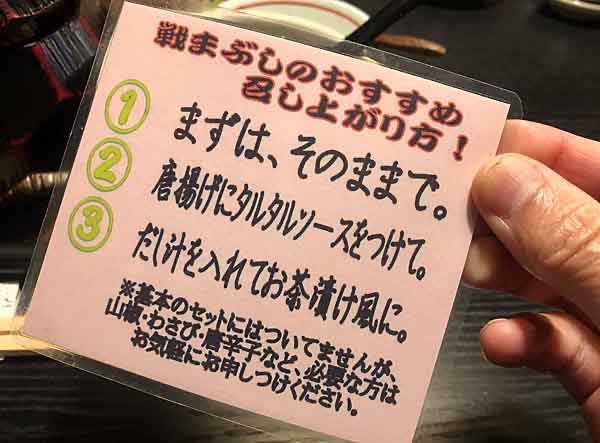 戦まぶしのおすすめ
召し上がり方！
① まずは、そのままで。
② 唐揚げにタルタルソースをつけて。
③ だし汁を入れてお茶漬け風に。
※基本のセットにはついてませんが、
山椒・わさび・唐辛子など、必要な方は
お気軽にお申しつけください。